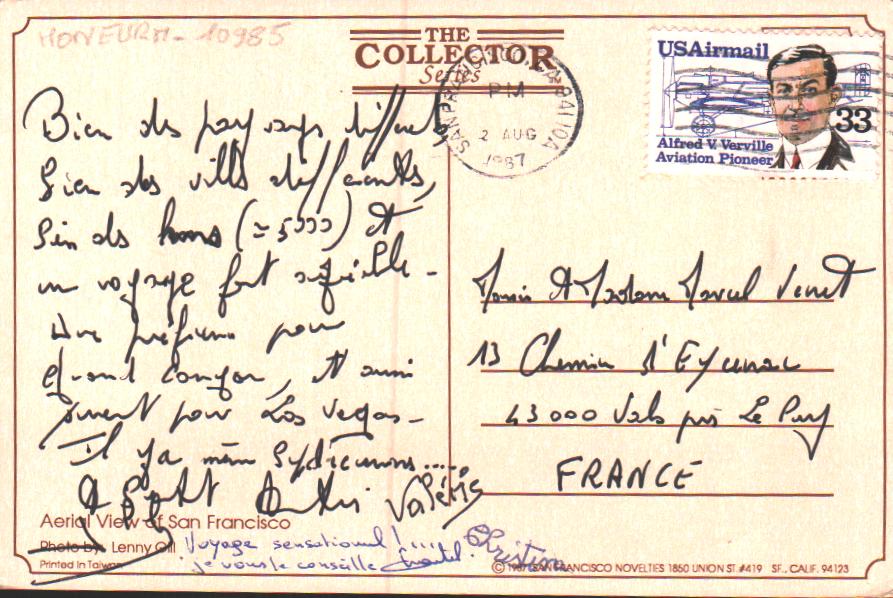 HONEURM - 10985
THE
COLLECTOR
Series
SAN FRANCISCO, CA 941 10A
PM
2 AUG
1987
USAirmail
33
Alfred V. Verville
Aviation Pioneer
Bien des paysages différents
bien des villes différentes,
bien des kms (≃ 5000) et
un voyage fort agréable -
Une préférence pour
grand canyon, et aussi
pour Las Vegas -
Il y a même
Valérie
Monsieur et Madame Marcel Venet
13 Chemin d'Eycenac
43000 Vals près Le Puy
FRANCE
Aerial View of San Francisco
Photo by: Lenny Gill
Voyage sensationnel !....
je vous le conseille Chantal.
Christine
Printed in Taiwan
© 1987 SAN FRANCISCO NOVELTIES 1850 UNION ST. #419 SF., CALIF. 94123